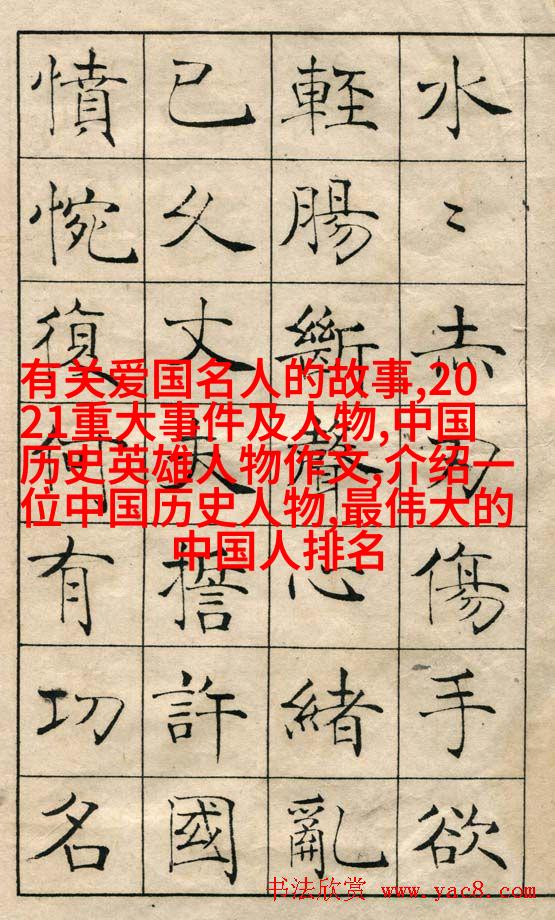 水〻赤刃傷手欲
輕腸斷聲心緒亂
已久丈夫誓許國
憤惋復何有功名
有关爱国名人的故事,20
21重大事件及人物,中国
历史英雄人物作文,介绍一
位中国历史人物,最伟大的
中国人排名
书法欣赏 www.yac8.com